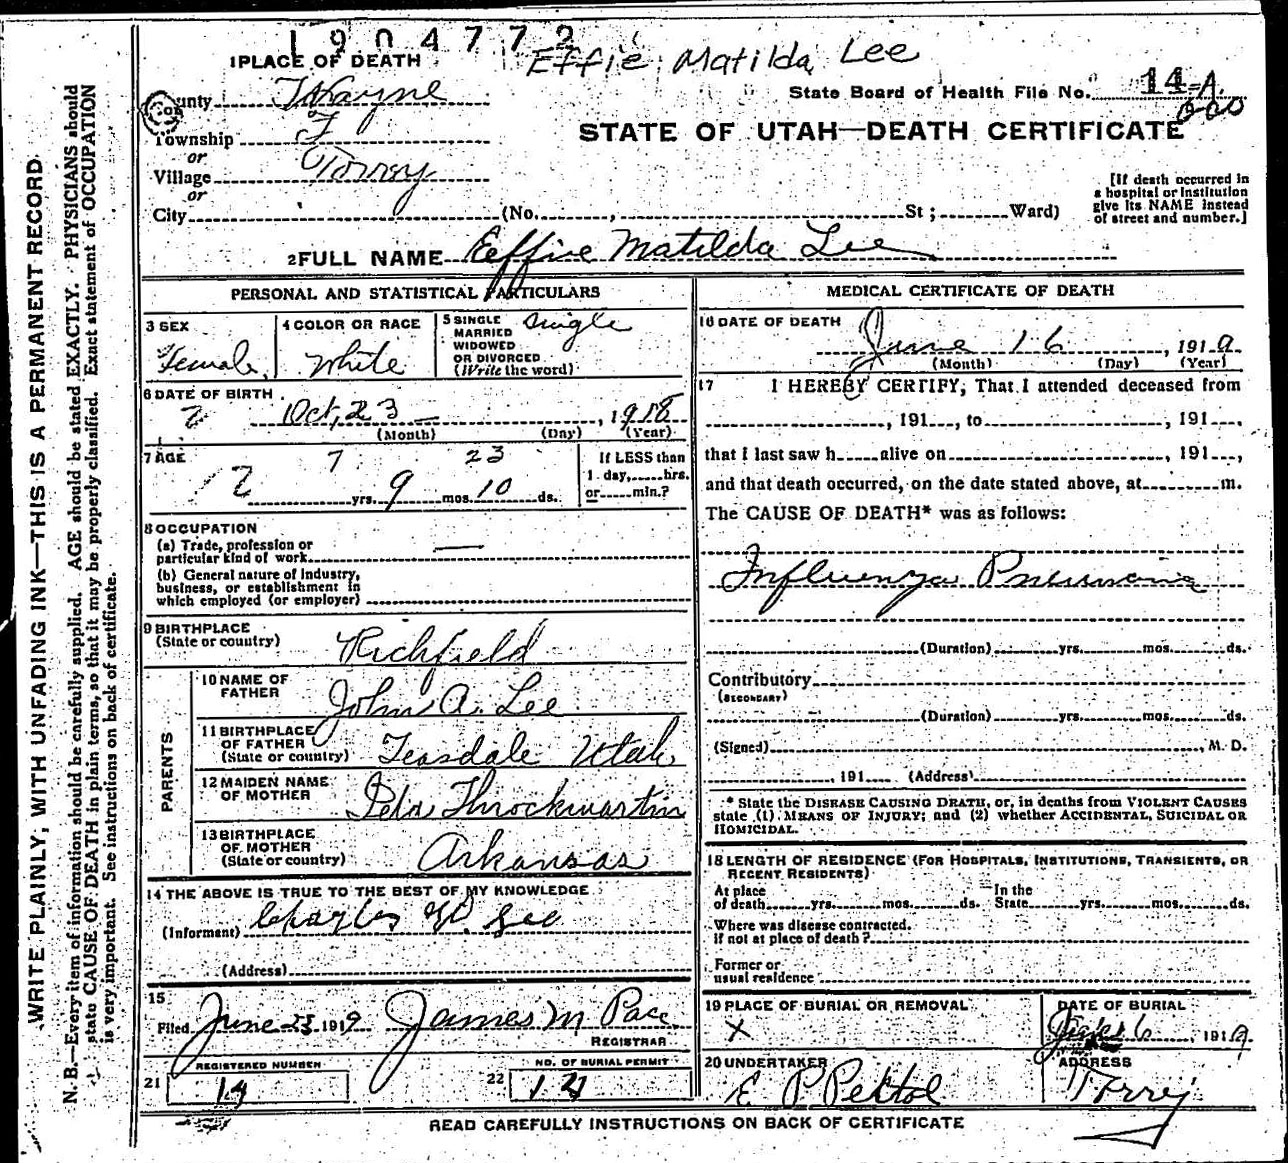 1904772
Effie Matilda Lee
1 PLACE OF DEATH
County Wayne
State Board of Health File No. 14-A.
STATE OF UTAH—DEATH CERTIFICATE
Township
or
Village Torrey
or
City (No. , St ; Ward)
[If death occurred in
a hospital or institution
give its NAME instead
of street and number.]
2 FULL NAME Eeffie Matilda Lee
PERSONAL AND STATISTICAL PARTICULARS
3 SEX
Female
4 COLOR OR RACE
White
5 SINGLE
MARRIED
WIDOWED
OR DIVORCED
(Write the word)
Single
6 DATE OF BIRTH
Oct, 23, 1918
(Month) (Day) (Year)
7 AGE
7 23
yrs. 9 mos. 10 ds.
If LESS than
1 day, hrs.
or min.?
8 OCCUPATION
(a) Trade, profession or
particular kind of work
(b) General nature of industry,
business, or establishment in
which employed (or employer)
9 BIRTHPLACE
(State or country)
Richfield
PARENTS
10 NAME OF
FATHER
John A. Lee
11 BIRTHPLACE
OF FATHER
(State or country)
Teasdale Utah
12 MAIDEN NAME
OF MOTHER
Throckmartin
13 BIRTHPLACE
OF MOTHER
(State or country)
Arkansas
14 THE ABOVE IS TRUE TO THE BEST OF MY KNOWLEDGE
(Informant) Lee
(Address)
15
Filed June 25 1919 James M Pace
REGISTRAR
REGISTERED NUMBER
21 14
NO. OF BURIAL PERMIT
22
MEDICAL CERTIFICATE OF DEATH
16 DATE OF DEATH
June 16, 1919
(Month) (Day) (Year)
17 I HEREBY CERTIFY, That I attended deceased from
, 191 , to , 191 ,
that I last saw h alive on , 191 ,
and that death occurred, on the date stated above, at m.
The CAUSE OF DEATH* was as follows:
Influenza Pneumonia
(Duration) yrs. mos. ds.
Contributory
(SECONDARY)
(Duration) yrs. mos. ds.
(Signed) , M. D.
, 191 (Address)
* State the DISEASE CAUSING DEATH, or, in deaths from VIOLENT CAUSES
state (1) MEANS OF INJURY; and (2) whether ACCIDENTAL, SUICIDAL OR
HOMICIDAL.
18 LENGTH OF RESIDENCE (FOR HOSPITALS, INSTITUTIONS, TRANSIENTS, OR
RECENT RESIDENTS)
At place
of death yrs. mos. ds.
In the
State yrs. mos. ds.
Where was disease contracted.
if not at place of death?
Former or
usual residence
19 PLACE OF BURIAL OR REMOVAL
X
DATE OF BURIAL
, 1919.
20 UNDERTAKER
E P Pektol
ADDRESS
Torrey
READ CAREFULLY INSTRUCTIONS ON BACK OF CERTIFICATE
WRITE PLAINLY, WITH UNFADING INK—THIS IS A PERMANENT RECORD
N. B.—Every item of information should be carefully supplied. AGE should be stated EXACTLY. PHYSICIANS should
state CAUSE OF DEATH in plain terms, so that it may be properly classified. Exact statement of OCCUPATION
is very important. See instructions on back of certificate.